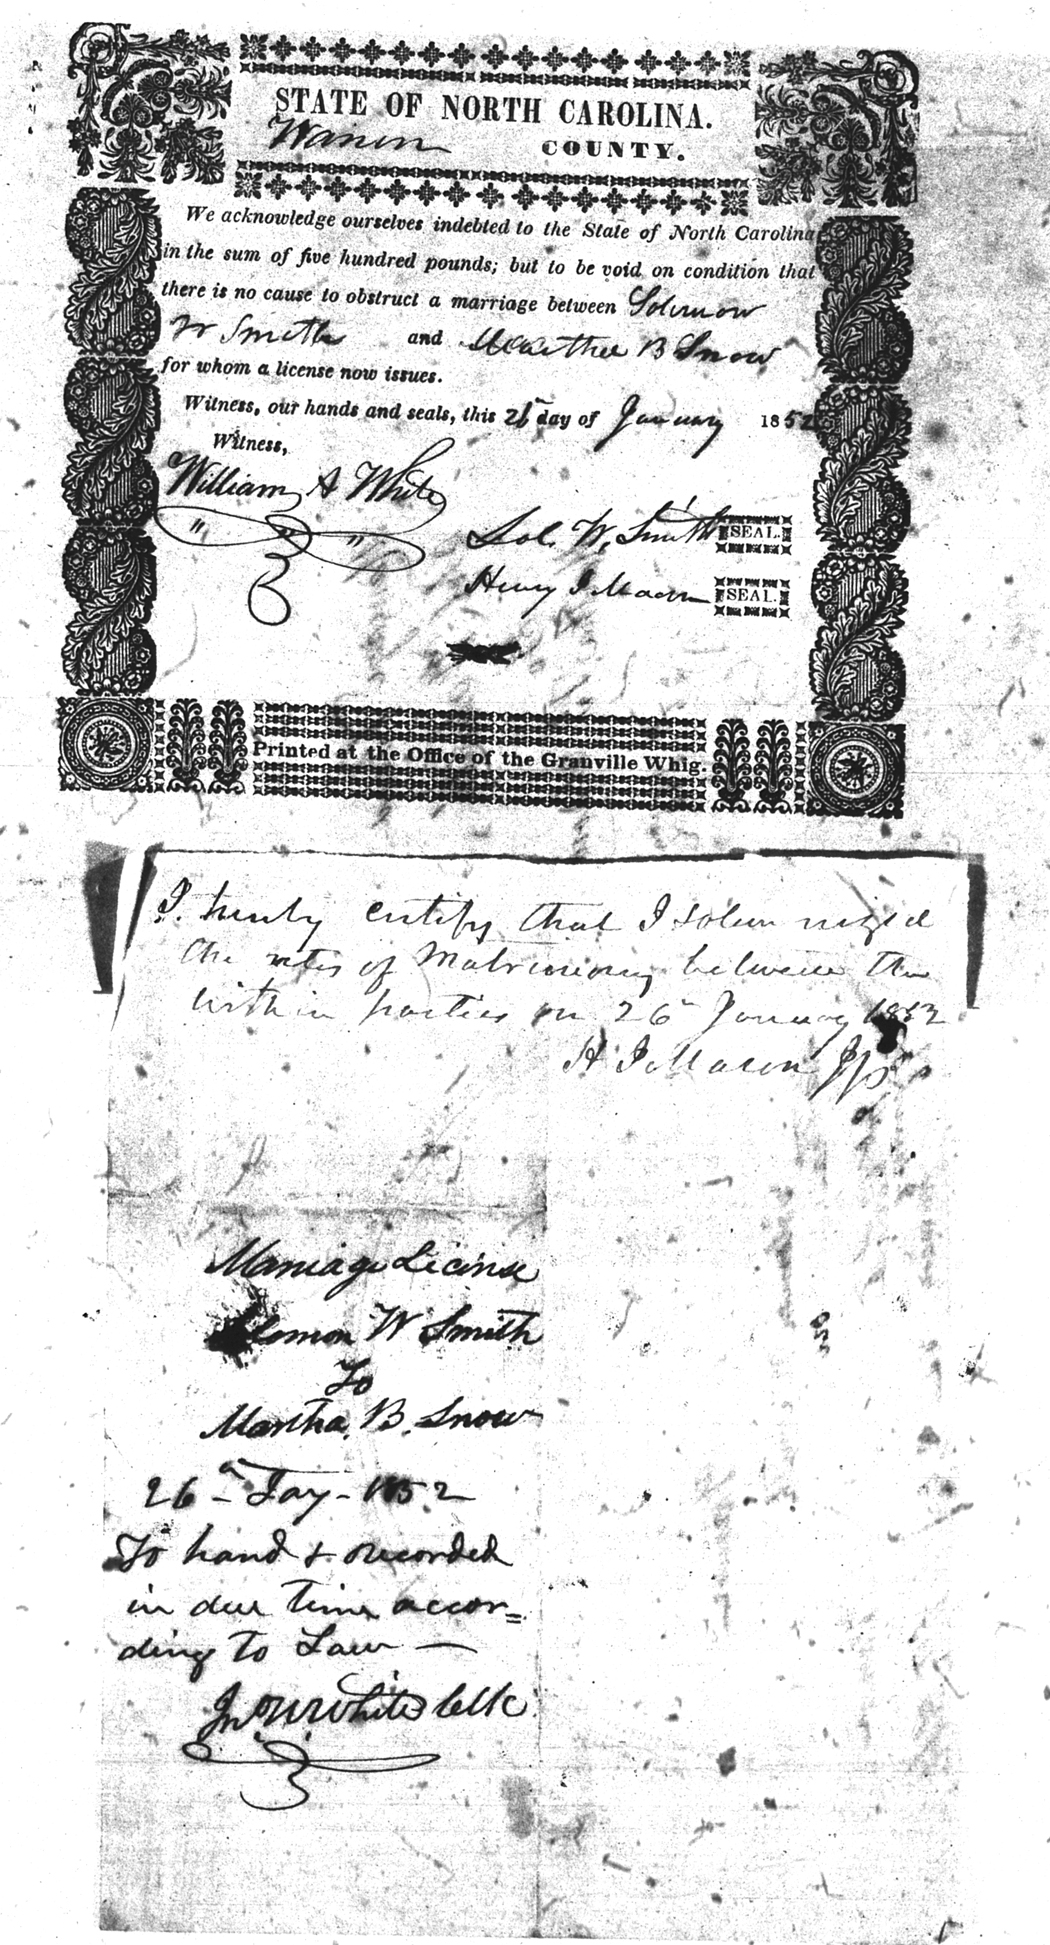 STATE OF NORTH CAROLINA.
Warren COUNTY.
We acknowledge ourselves indebted to the State of North Carolina
in the sum of five hundred pounds; but to be void on condition that
there is no cause to obstruct a marriage between Solomon
W Smith and Martha B Snow
for whom a license now issues.
Witness, our hands and seals, this day of January 1852
Witness,
William A White
Sol. W. Smith SEAL.
Henry J Macon SEAL.
Printed at the Office of the Granville Whig.
I herely certify that I solem nized
the rites of Matrimony between the
within parties on 26 January 1852
H J Macon Jp
Marriage License
Solomon W Smith
To
Martha. B. Snow
26th Jay - 1852
To hand & recorded
in due time accor=
ding to Law —
Jno W White Clk